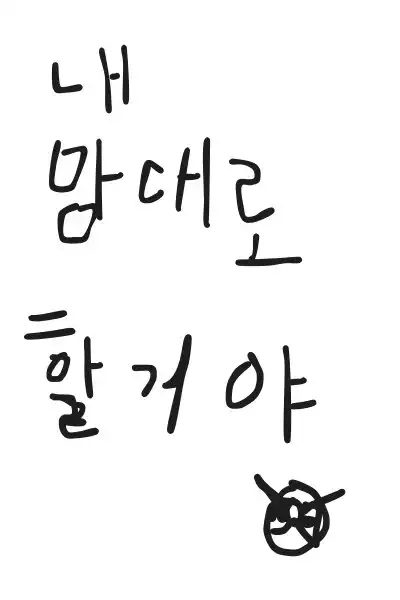 내
맘대로
할거야